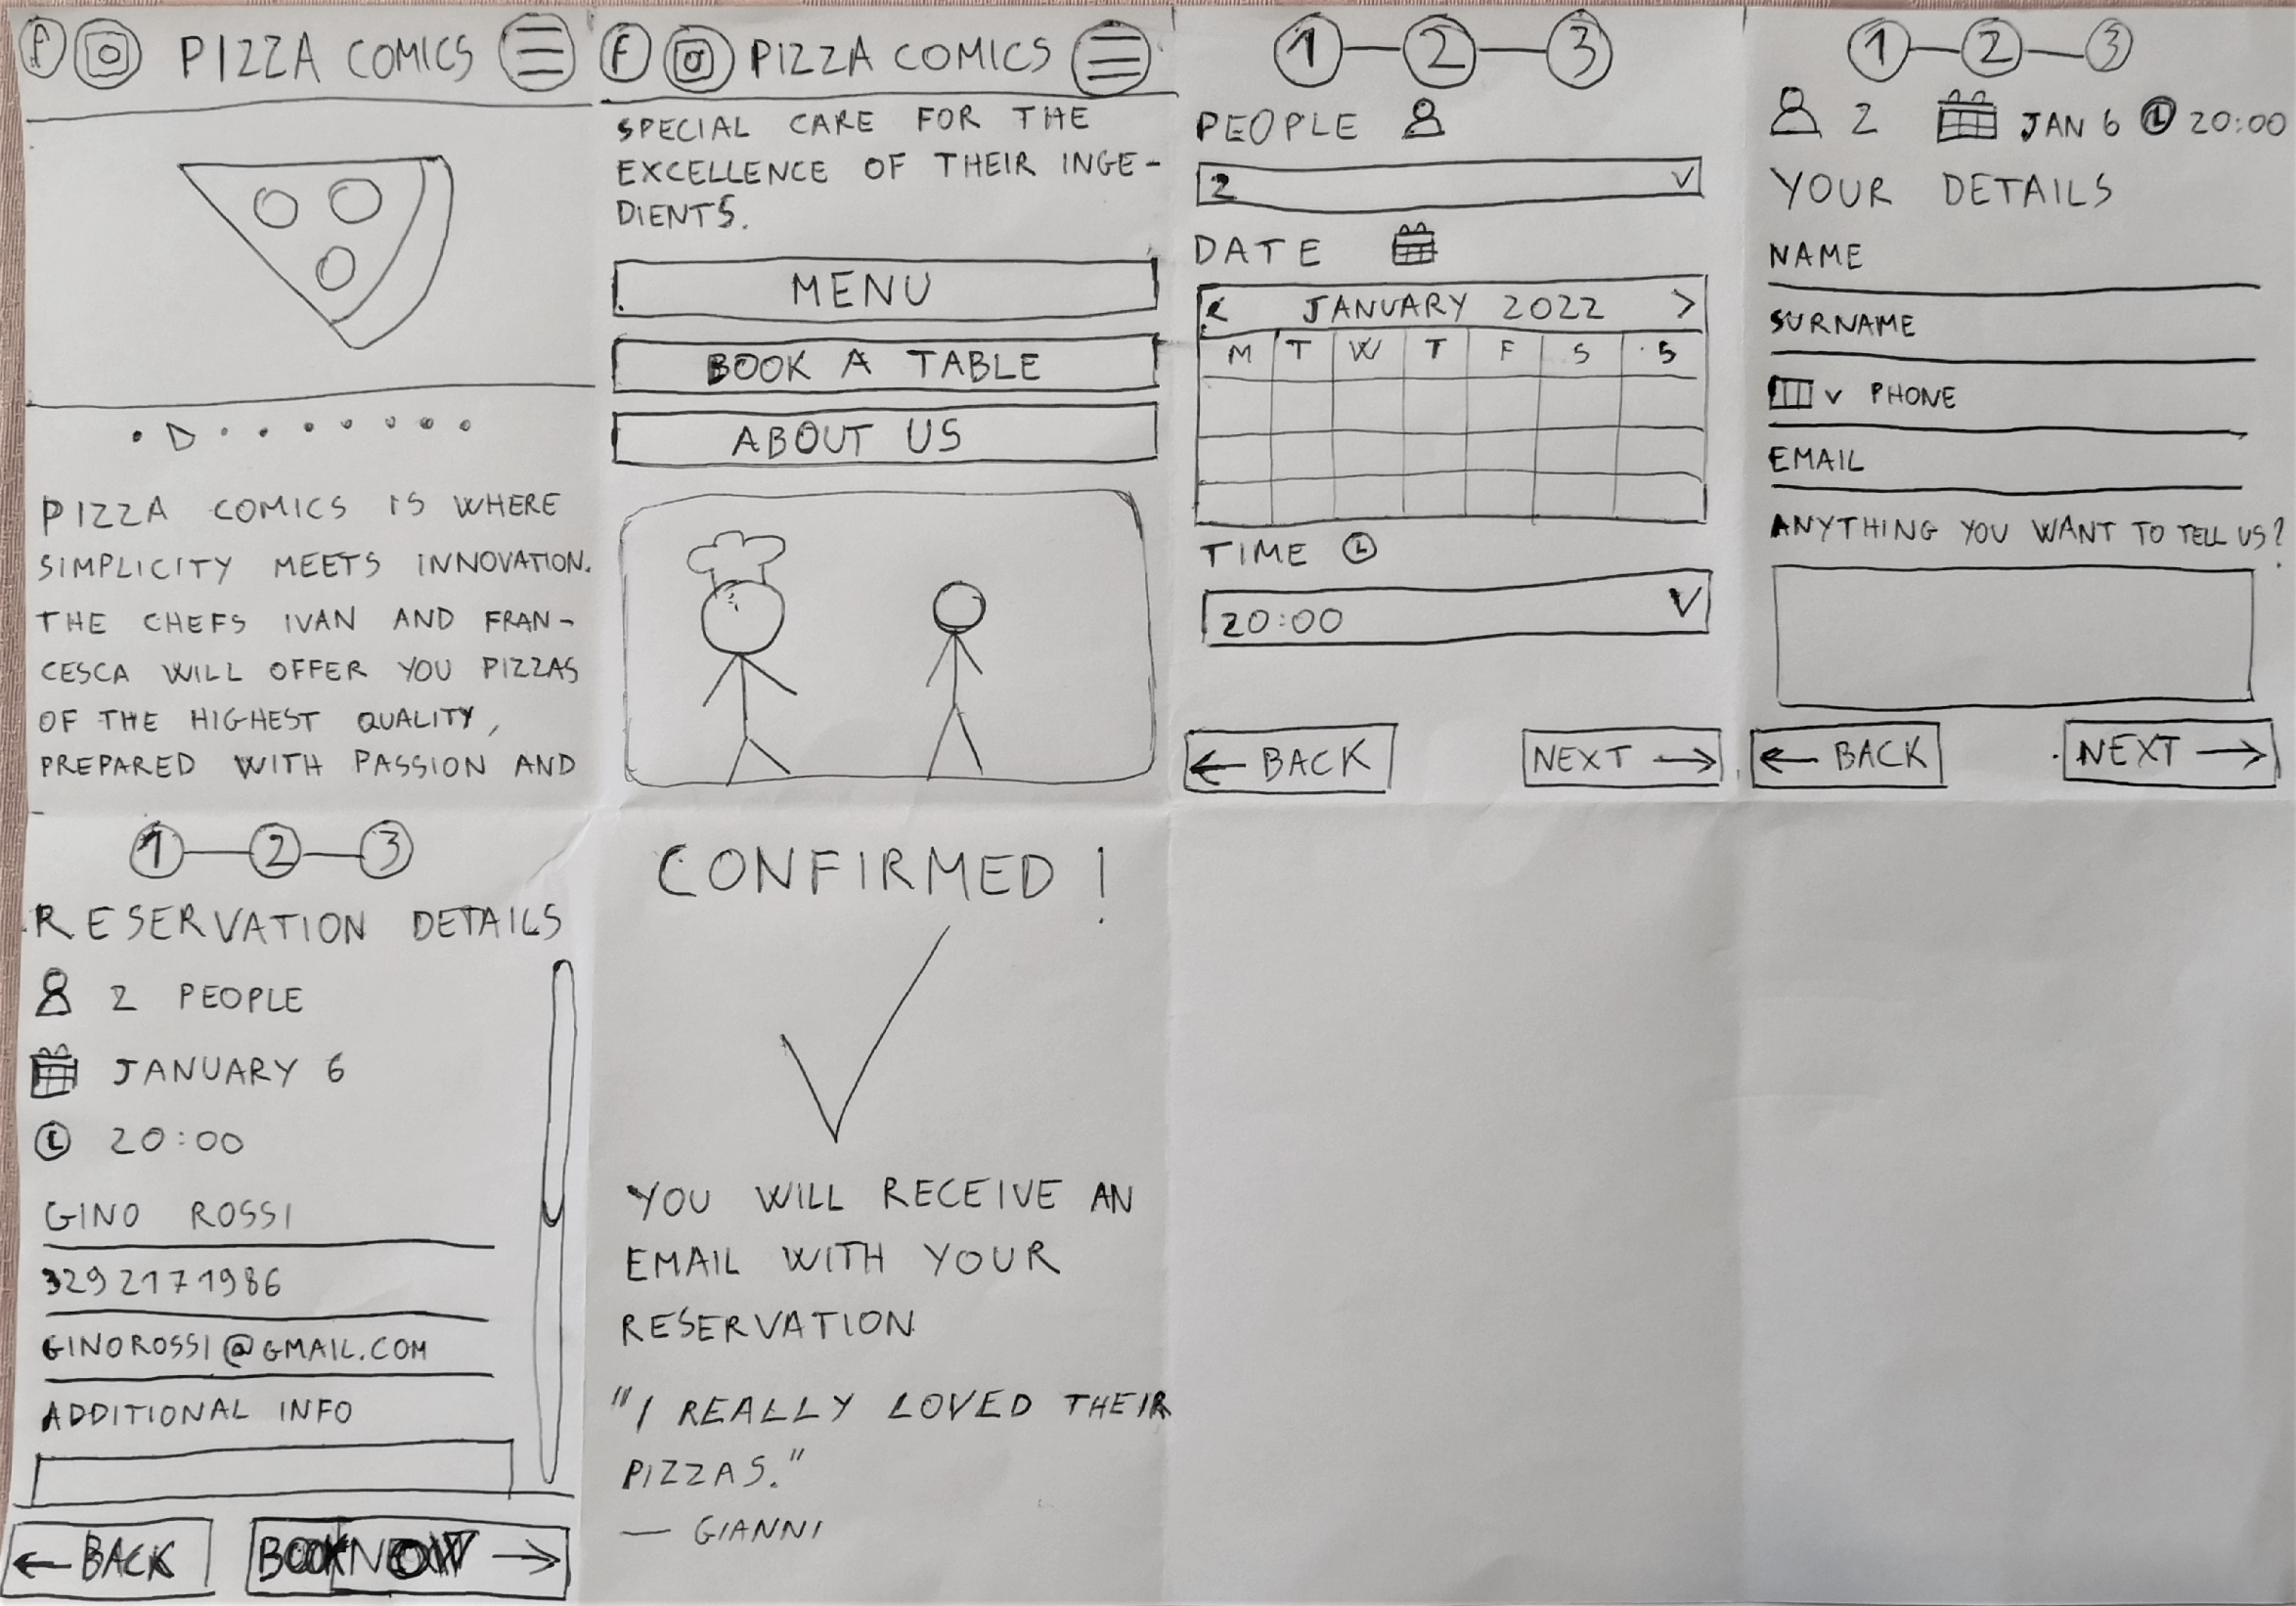 f PIZZA COMICS
PIZZA COMICS IS WHERE
SIMPLICITY MEETS INNOVATION.
THE CHEFS IVAN AND FRAN-
CESCA WILL OFFER YOU PIZZAS
OF THE HIGHEST QUALITY,
PREPARED WITH PASSION AND
F PIZZA COMICS
SPECIAL CARE FOR THE
EXCELLENCE OF THEIR INGE-
DIENTS.
MENU
BOOK A TABLE
ABOUT US
1 2 3
PEOPLE
2
DATE
< JANUARY 2022 >
M T W T F S S
TIME
20:00
← BACK NEXT →
1 2 3
2 JAN 6 20:00
YOUR DETAILS
NAME
SURNAME
PHONE
EMAIL
ANYTHING YOU WANT TO TELL US?
← BACK NEXT →
1 2 3
RESERVATION DETAILS
2 PEOPLE
JANUARY 6
20:00
GINO ROSSI
3292171986
GINOROSSI@GMAIL.COM
ADDITIONAL INFO
← BACK BOOK NOW →
CONFIRMED!
YOU WILL RECEIVE AN
EMAIL WITH YOUR
RESERVATION
"I REALLY LOVED THEIR
PIZZAS."
— GIANNI